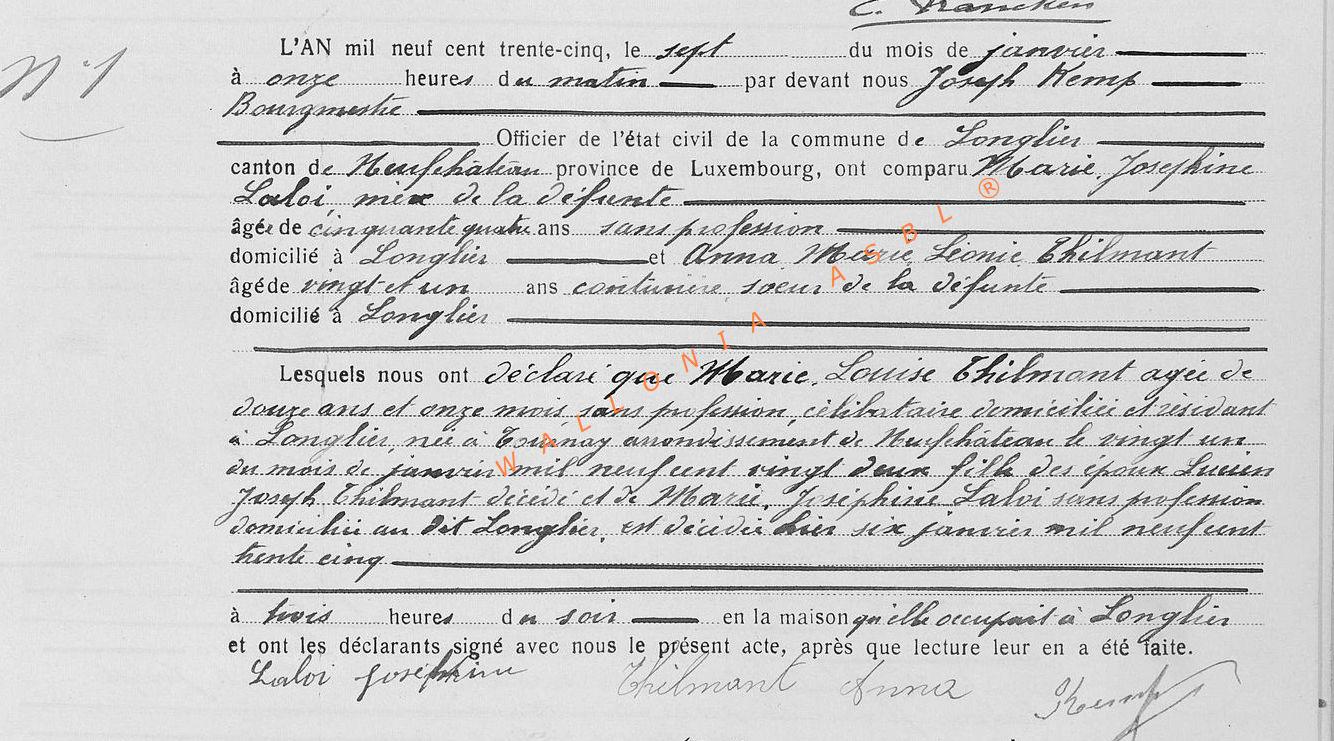 C. Francken
N° 1
L'AN mil neuf cent trente-cinq, le sept du mois de janvier
à onze heures du matin par devant nous Joseph Kemp
Bourgmestre
Officier de l'état civil de la commune de Longlier
canton de Neufchâteau province de Luxembourg, ont comparu Marie, Josephine
Laloi, mère de la défunte
âgée de cinquante quatre ans sans profession
domicilié à Longlier et Anna Marie Léonie Thilmant
âgé de vingt et un ans couturière, soeur de la défunte
domicilié à Longlier
Lesquels nous ont déclaré que Marie, Louise Thilmant agée de
douze ans et onze mois, sans profession, célibataire domiciliée et résidant
à Longlier, née à Tournay arrondissement de Neufchâteau le vingt un
du mois de janvier mil neuf cent vingt deux fille des époux Lucien
Joseph Thilmant décédé et de Marie, Joséphine Laloi sans profession
domiciliée au dit Longlier, est décédée hier six janvier mil neuf cent
trente cinq
à trois heures du soir en la maison qu'elle occupait à Longlier
et ont les déclarants signé avec nous le présent acte, après que lecture leur en a été faite.
Laloi Joséphine Thilmant Anna Kemp
WALLONIA ASBL ®